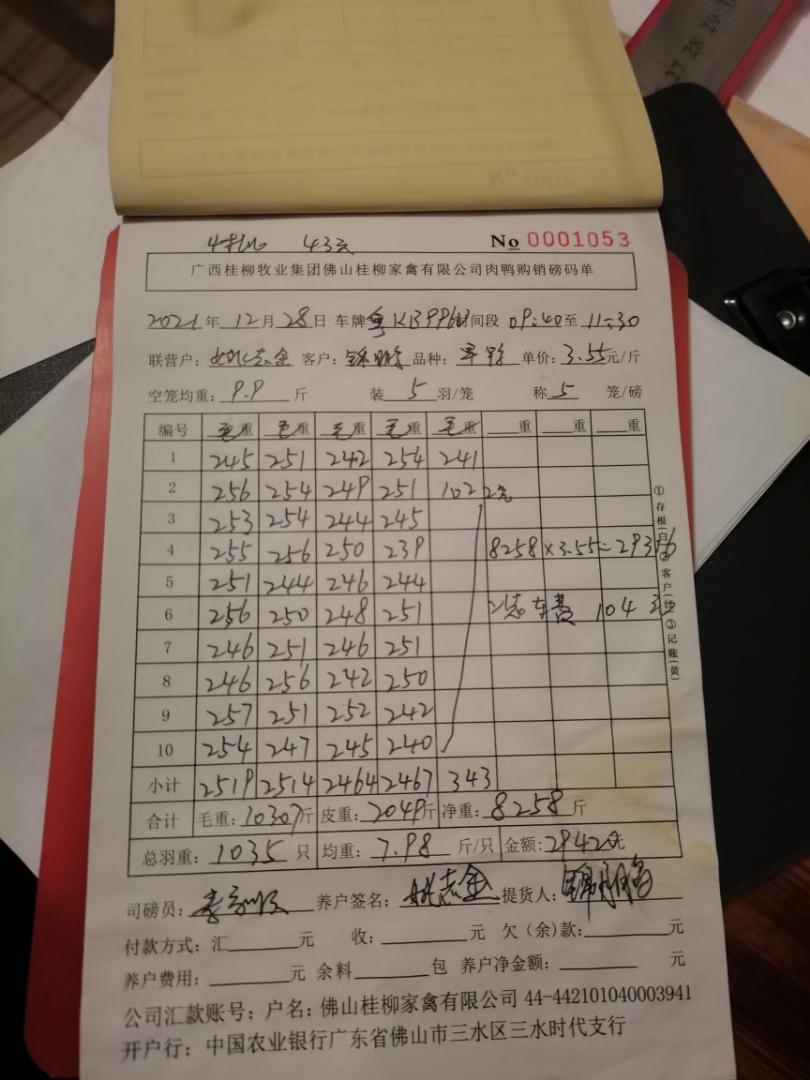 43元 No 0001053
广西桂柳牧业集团佛山桂柳家禽有限公司肉鸭购销磅码单
2021年12月28日 车牌粤KB996 时间段 09:40至11:30
联营户:姚志金 客户: 品种: 单价:3.55元/斤
空笼均重:9.9斤 装5羽/笼 称5笼/磅
编号 毛重 毛重 毛重 毛重 毛重 重 重 重
1 245 251 242 254 241
2 256 254 249 251 102 2笼
3 253 254 244 245
4 255 256 250 239 8258×3.55=29316
5 251 244 246 244
6 256 250 248 251 车费 104元
7 246 251 246 251
8 246 256 242 250
9 257 251 252 242
10 254 247 245 240
小计 2519 2514 2464 2467 343
合计 毛重:10307斤 皮重:2049斤 净重:8258斤
总羽重:1035只 均重:7.98斤/只 金额:29420元
司磅员: 养户签名:姚志金 提货人:
付款方式:汇 元 收: 元 欠(余)款: 元
养户费用: 元 余料 包 养户净金额: 元
公司汇款账号:户名:佛山桂柳家禽有限公司 44-442101040003941
开户行:中国农业银行广东省佛山市三水区三水时代支行
①存根(白)②客户(红)③记账(黄)
27 28 29